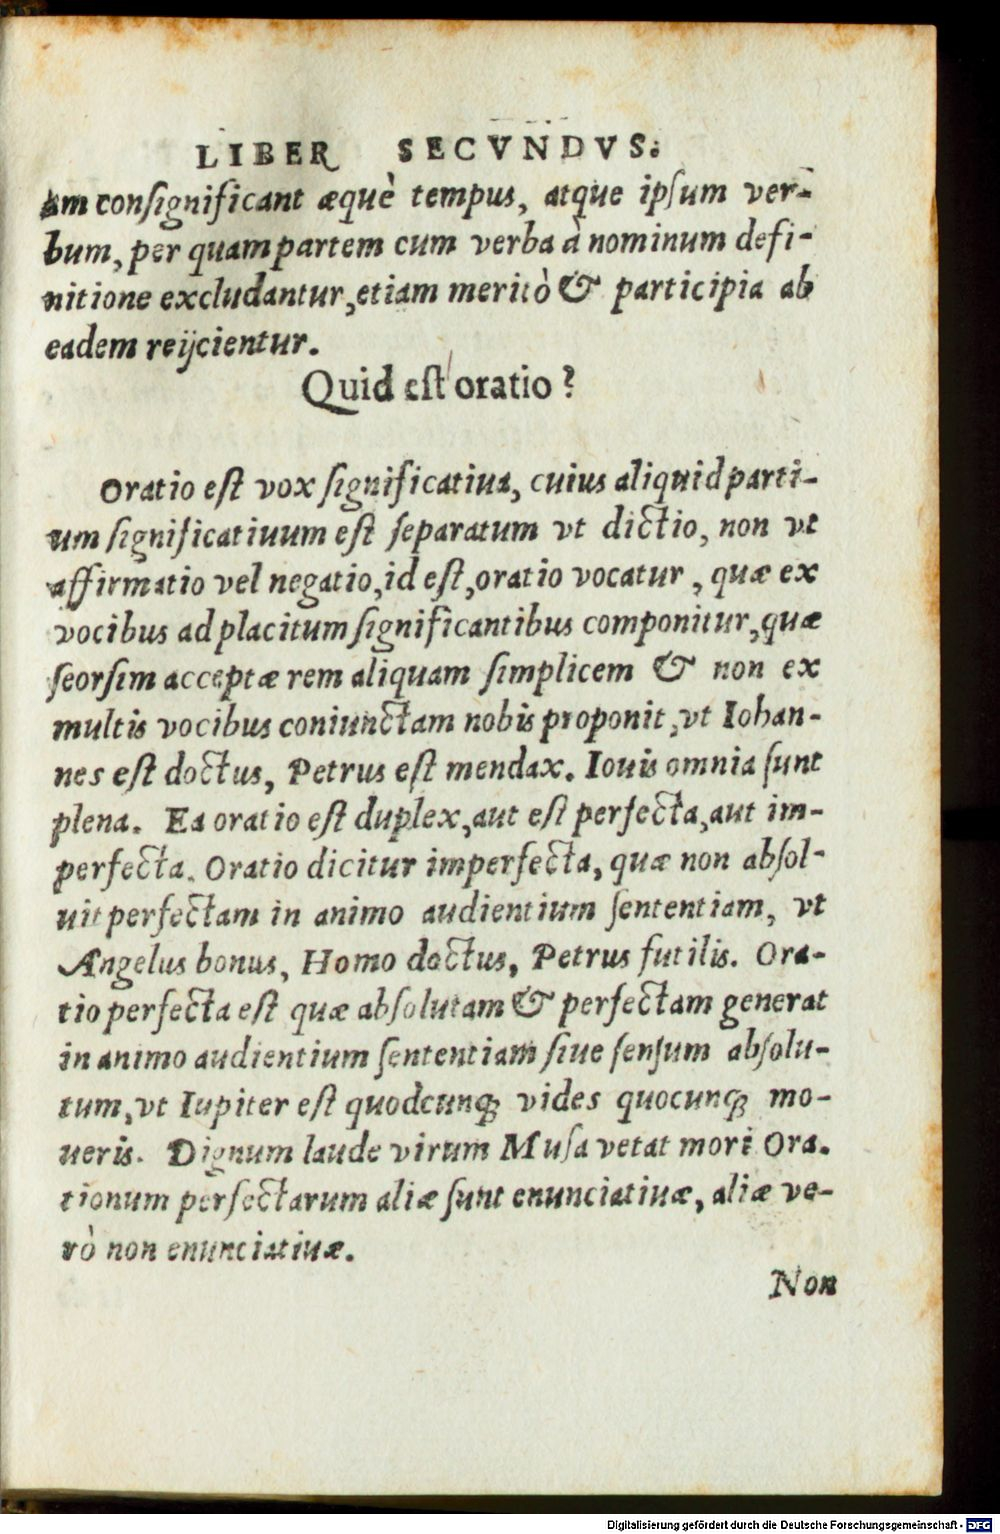 LIBER SECVNDVS.
am consignificant æquè tempus, atque ipsum ver-
bum, per quam partem cum verba à nominum defi-
nitione excludantur, etiam meritò & participia ab
eadem reijcientur.
Quid est oratio?
Oratio est vox significatiua, cuius aliquid parti-
um significatiuum est separatum vt dictio, non vt
affirmatio vel negatio, id est, oratio vocatur, quæ ex
vocibus ad placitum significantibus componitur, quæ
seorsim acceptæ rem aliquam simplicem & non ex
multis vocibus coniunctam nobis proponit, vt Iohan-
nes est doctus, Petrus est mendax. Iouis omnia sunt
plena. Ea oratio est duplex, aut est perfecta, aut im-
perfecta. Oratio dicitur imperfecta, quæ non absol-
uit perfectam in animo audientium sententiam, vt
Angelus bonus, Homo doctus, Petrus futilis. Ora-
tio perfecta est quæ absolutam & perfectam generat
in animo audientium sententiam siue sensum absolu-
tum, vt Iupiter est quodcunq; vides quocunq; mo-
ueris. Dignum laude virum Musa vetat mori Ora.
tionum perfectarum aliæ sunt enunciatiuæ, aliæ ve-
rò non enunciatiuæ.
Non
Digitalisierung gefördert durch die Deutsche Forschungsgemeinschaft - DFG